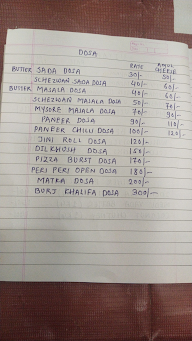 DOSA
RATE AMUL CHEESE
BUTTER SADA DOSA 30/- 50/-
SCHEZWAN SADA DOSA 40/- 60/-
BUTTER MASALA DOSA 40/- 60/-
SCHEZWAN MASALA DOSA 50/- 70/-
MYSORE MASALA DOSA 70/- 90/-
PANEER DOSA 90/- 110/-
PANEER CHILLI DOSA 100/- 120/-
JINI ROLL DOSA 120/-
DILKHUSH DOSA 150/-
PIZZA BURST DOSA 170/-
PERI PERI OPEN DOSA 180/-
MATKA DOSA 200/-
BURJ KHALIFA DOSA 300/-